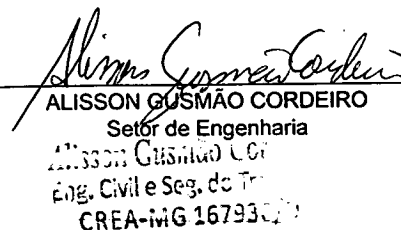 Alisson Gusmão Cordeiro
ALISSON GUSMÃO CORDEIRO
Setor de Engenharia
Alisson Gusmão
Eng. Civil e Seg. do
CREA-MG